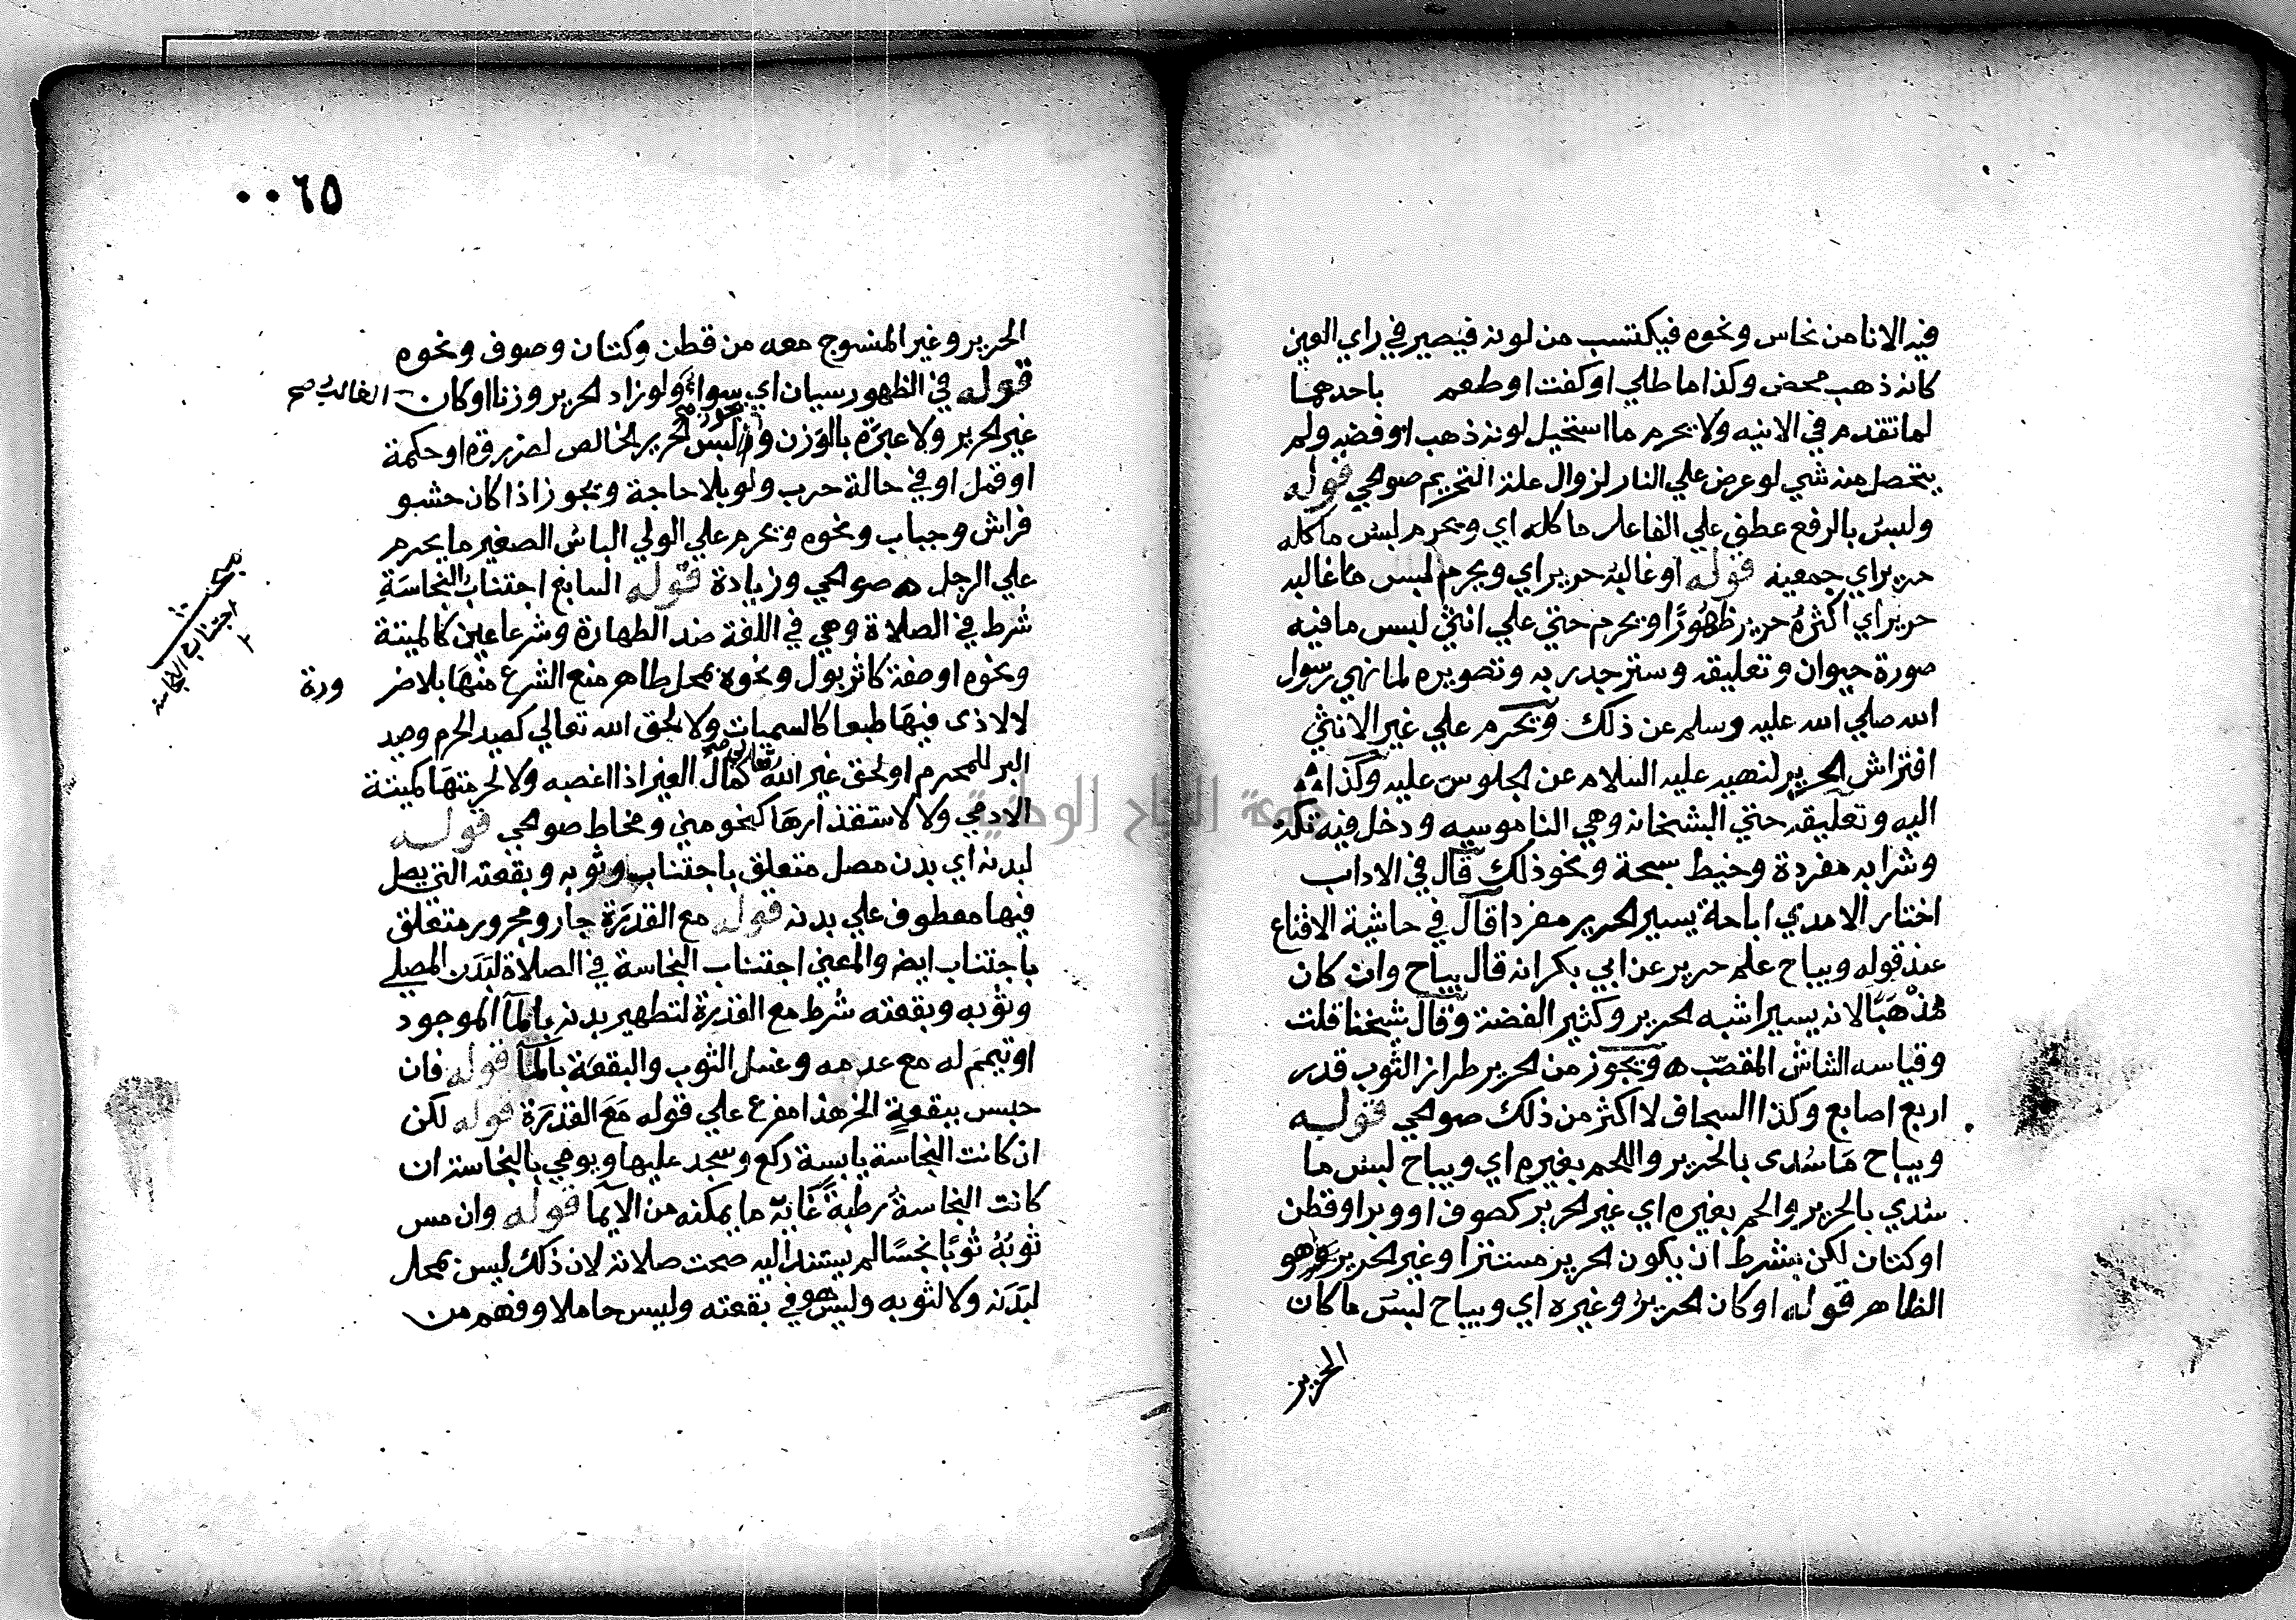 فيه الانا من نحاس ونحوه فيكتسب من لونه فيصير في راي العين
كانه ذهب محض وكذا ما طلي او كفت او طعم باحدهما
لما تقدم في الانيه ولا يحرم ما استحيل لونه ذهب او فضه ولم
يتحصل منه شي لو عرض علي النار لزوال علة التحريم صوالحي قوله
ولبس بالرفع عطف علي الفاعل ما كله اي ويحرم لبس ما كله
حرير اي جميعه قوله او غالبه حرير اي ويحرم لبس ما غالبه
حرير اي اكثره حرير ظهورًا ويحرم حتي علي انثي لبس ما فيه
صورة حيوان وتعليقه وستر جدر به وتصويره لما نهي رسول
الله صلي الله عليه وسلم عن ذلك ويحرم علي غير الانثي
افتراش الحرير لنهيه عليه السلام عن الجلوس عليه وكذا
اليه وتعليقه حتي البشخانه وهي الناموسيه ودخل فيه تكة
وشرابه مفردة وخيط سبحة ونحو ذلك قال في الاداب
اختار الامدي اباحة يسير الحرير مفردا قال في حاشية الاقناع
عند قوله ويباح علم حرير عن ابي بكر انه قال يباح وان كان
مذهبًا لانه يسير اشبه الحرير وكثير الفضة وقال شيخنا قلت
وقياسه الشاش المقصب ه ويجوز من الحرير طراز الثوب قدر
اربع اصابع وكذا السجاف لا اكثر من ذلك صوالحي قوله
ويباح ما سُدى بالحرير والحم بغيره اي ويباح لبس ما
سدي بالحرير والحم بغيره اي غير الحرير كصوف او وبر او قطن
او كتان لكن بشرط ان يكون الحرير مستترا وغير الحرير هو
الظاهر قوله او كان الحرير وغيره اي ويباح لبس ما كان
الحرير
٠٠٦٥
الحرير وغير المنسوج معه من قطن وكتان وصوف ونحوه
قوله في الظهور سيان اي سواء ولو زاد الحرير وزنا او كان الغالب صح
غير الحرير ولا عبرة بالوزن و يجوز صح لبس الحرير الخالص لضرورة او حكة
او قمل او في حالة حرب ولو بلا حاجة ويجوز اذا كان حشو
فراش وجباب ونحوه ويحرم علي الولي الباس الصغير ما يحرم
علي الرجل ه صوالحي وزيادة قوله السابع اجتناب النجاسَةِ
مبحث اجتناب النجاسه
شرط في الصلاة وهي في اللغة ضد الطهارة وشرعا عين كالميتة
ونحوه او صفة كاثر بول ونحوه بمحل طاهر منع الشرع منها بلا ضر ورة
لا لاذى فيها طبعا كالسميات ولا لحق الله تعالي كصيد الحرم وصيد
البر للمحرم او لحق غير الله تعالى صح كمال الغير اذا اغصبه ولا لحرمتها كميتة
الادمي ولا لاستقذارها كنحو مني ومخاط صوالحي قوله
لبدنه اي بدن مصل متعلق باجتناب وثوبه وبقعته التي يصل
فيها معطوف علي بدنه قوله مع القدرة جار ومجرور متعلق
باجتناب ايضا والمعني اجتناب النجاسة في الصلاة لبدن المصلي
وثوبه وبقعته شرط مع القدرة لتطهير بدنه بالمآ الموجود
او تيمم له مع عدمه وغسل الثوب والبقعة بالمآ قوله فان
حبس ببقعةٍ الخ هذا مفرع علي قوله مَعَ القدرَة قوله لكن
ان كانت النجاسة يابسة ركع وسجد عليها ويومي بالنجاسة ان
كانت النجاسة رطبةً غاية ما يمكنه من الايما قوله وان مس
ثوبُهُ ثوبًا نجسًا لم يستند اليه صحت صلاته لان ذلك ليس بمحل
لبدنه ولا لثوبه وليس هو في بقعته وليس حاملا وفهم من